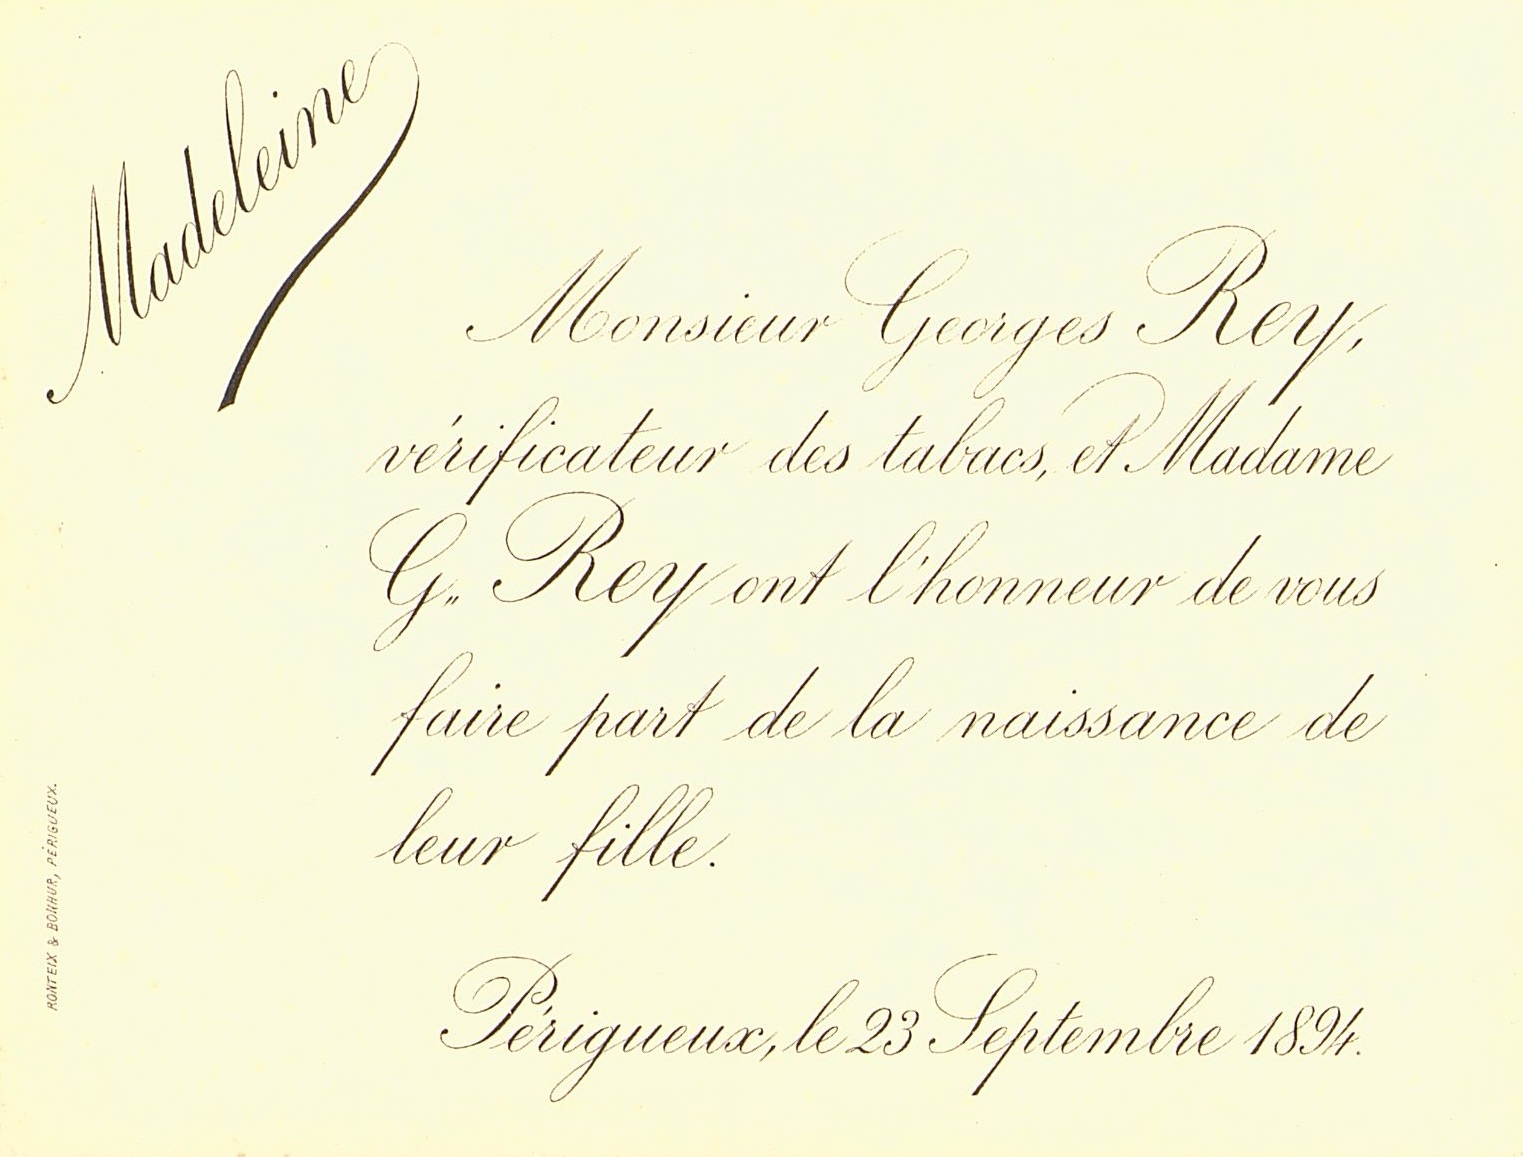 Madeleine
Monsieur Georges Rey,
vérificateur des tabacs, et Madame
G„ Rey ont l'honneur de vous
faire part de la naissance de
leur fille.
Périgueux, le 23 Septembre 1894.
RONTEIX & BONHUR, PÉRIGUEUX.